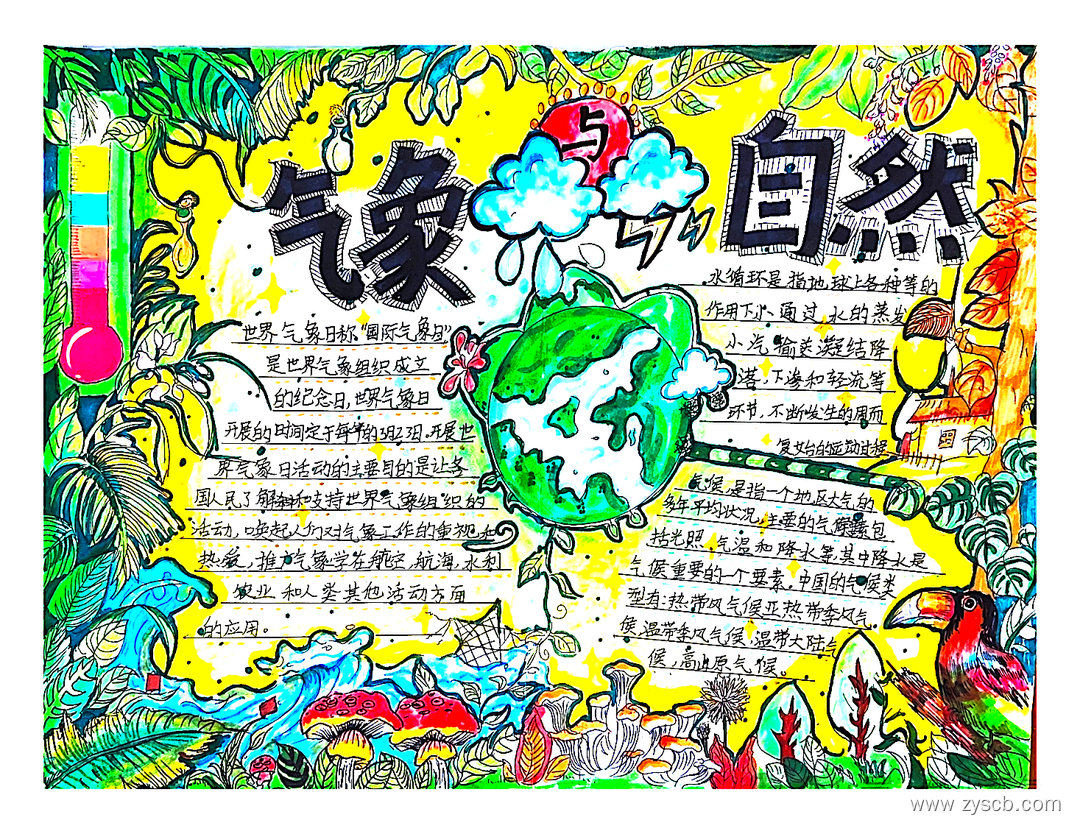 气象与自然
世界气象日称“国际气象日”
是世界气象组织成立
的纪念日,世界气象日
开展的时间定于每年的3月23日。开展世
界气象日活动的主要目的是让各
国人民了解和支持世界气象组织的
活动,唤起人们对气象工作的重视和
热爱,推广气象学在航空,航海,水利
农业和人类其他活动方面
的应用。
水循环是指地球上各种等的
作用下水,通过,水的蒸发
小汽输送凝结降
落,下渗和轻流等
环节,不断发生的周而
复
气候,是指一个地区大气的
多年平均状况,主要的气候
包
括光照,气温和降水等其中降水是
气候重要的一个要素。中国的气候类
型有:热带风气候亚热带季风气
候温带季风气候,温带大陆气
候,高山原气候。
www.zyscb.com